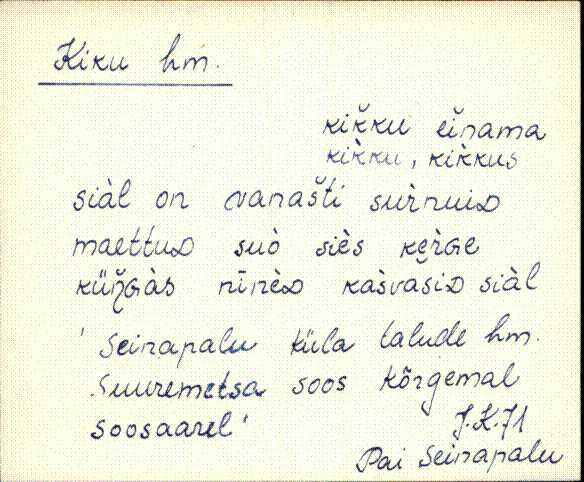 Kiku hm.
kik̆ku eĭnama
kik̀ku, kik̀kus
siàl on vanas̆ti sur̀nuiD
maettuD suò siès ker̀Ge
küŋ̆Gàs nīnèD kas̀vasiD siàl
' Seinapalu küla talude hm.
Suuremetsa soos kõrgemal
soosaarel'
J.K.71
Pai Seinapalu